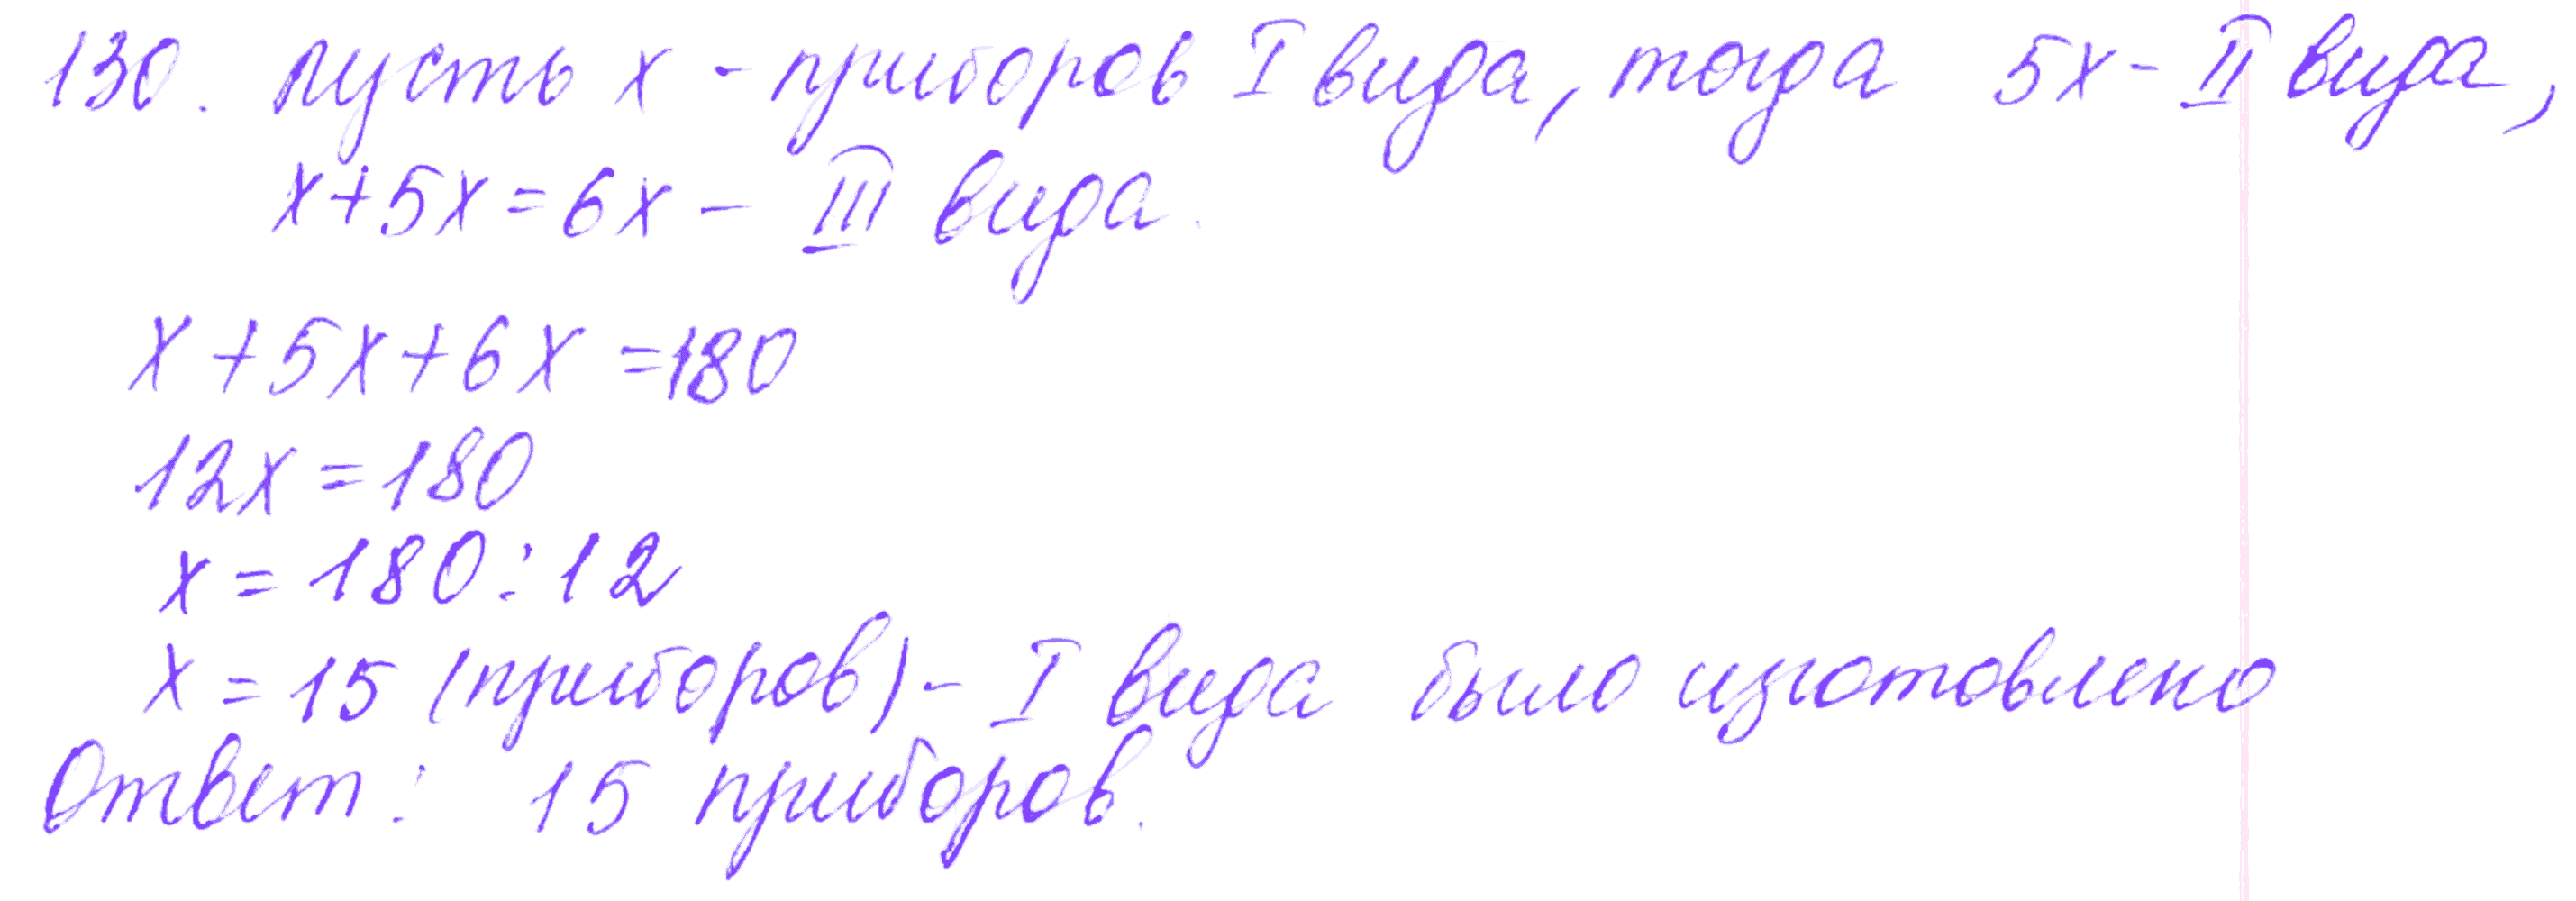 130. пусть x - приборов I вида, тогда 5x - II вида,
x+5x=6x - III вида.
x+5x+6x=180
12x=180
x=180:12
x=15 (приборов) - I вида было изготовлено
Ответ: 15 приборов.